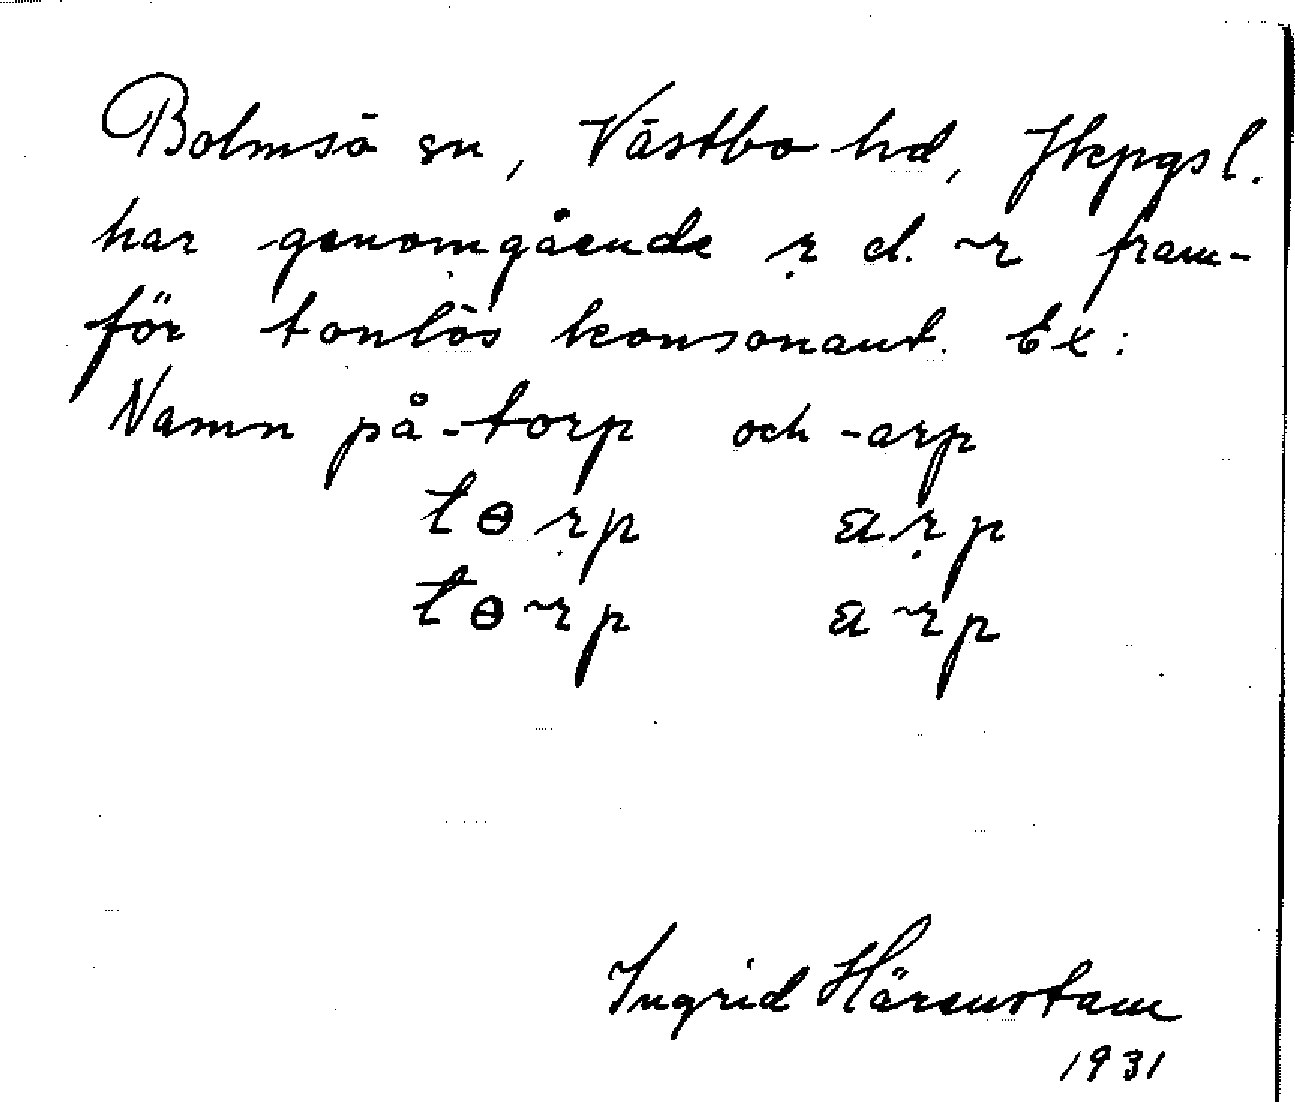 Bolmsö sn, Västbo hd, Jkpgs l.
har genomgående ṛ el. ~r fram-
för tonlös konsonant. Ex:
Namn på -torp och -arp
tɵṛp aṛp
tɵ~rp a~rp
Ingrid Härenstam
1931